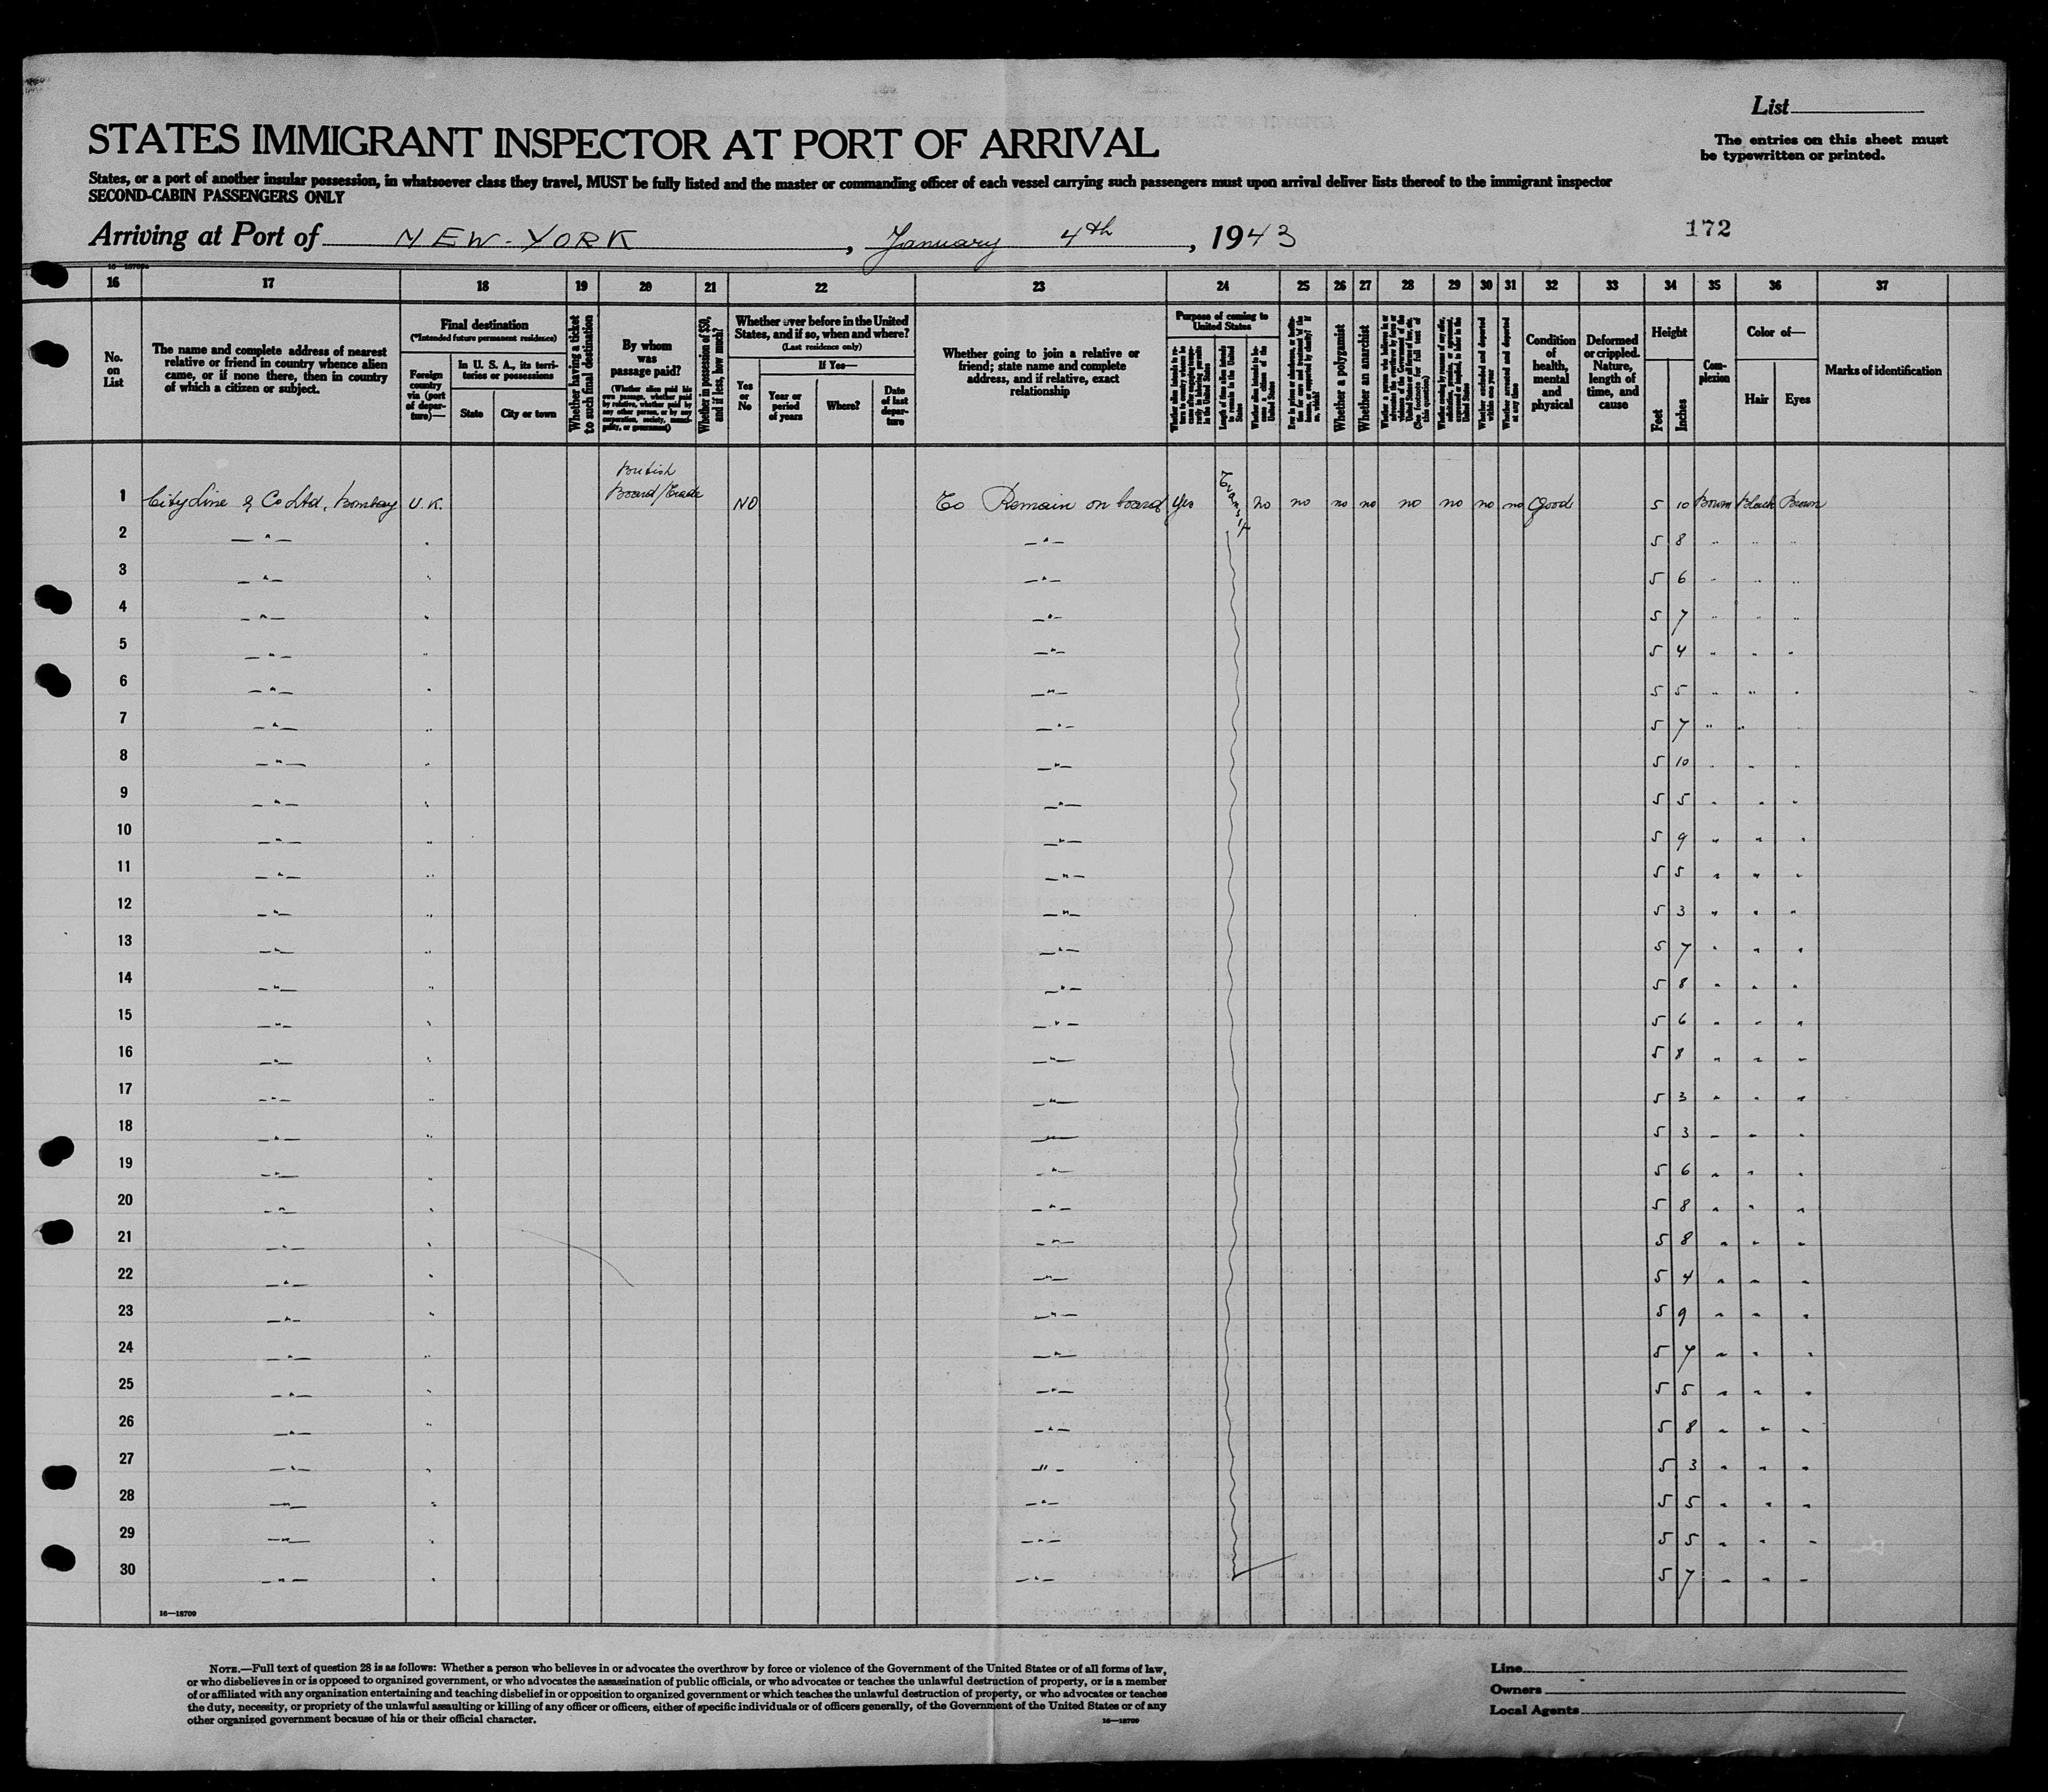 List
STATES IMMIGRANT INSPECTOR AT PORT OF ARRIVAL
The entries on this sheet must
be typewritten or printed.
States, or a port of another insular possession, in whatsoever class they travel, MUST be fully listed and the master or commanding officer of each vessel carrying such passengers must upon arrival deliver lists thereof to the immigrant inspector
SECOND-CABIN PASSENGERS ONLY
Arriving at Port of NEW-YORK, January 4th, 1943
172
16 17 18 19 20 21 22 23 24 25 26 27 28 29 30 31 32 33 34 35 36 37
No. on List
The name and complete address of nearest
relative or friend in country whence alien
came, or if none there, then in country
of which a citizen or subject.
Final destination
(*Intended future permanent residence)
Foreign country via (port of departure)—
In U. S. A., its territories or possessions
State
City or town
Whether having a ticket to such final destination
By whom was passage paid?
(Whether alien paid his own passage, whether paid by relative, whether paid by any other person, or by any corporation, society, municipality, or government)
Whether in possession of $50, and if less, how much?
Whether ever before in the United
States, and if so, when and where?
(Last residence only)
Yes or No
If Yes—
Year or period of years
Where?
Date of last departure
Whether going to join a relative or
friend; state name and complete
address, and if relative, exact
relationship
Purpose of coming to United States
Length of time alien intends to remain in the United States
Whether alien intends to become a citizen of the United States
Whether a polygamist
Whether an anarchist
Whether excluded and deported within one year
Whether arrested and deported at any time
Condition of health, mental and physical
Deformed or crippled. Nature, length of time, and cause
Height
Feet
Inches
Complexion
Color of—
Hair
Eyes
Marks of identification
1 City Line & Co Ltd, Bombay U.K. British Board/Trade NO To Remain on board Yes Transit no no no no no no no no Good 5 10 Brown Black Brown
2 —"— " —"— 5 8 " " "
3 —"— " —"— 5 6 " " "
4 —"— " —"— 5 7 " " "
5 —"— " —"— 5 4 " " "
6 —"— " —"— 5 5 " " "
7 —"— " —"— 5 7 " "
8 —"— " —"— 5 10 " " "
9 —"— " —"— 5 5 " " "
10 —"— " —"— 5 9 " " "
11 —"— " —"— 5 5 " " "
12 —"— " —"— 5 3 " " "
13 —"— " —"— 5 7 " " "
14 —"— " —"— 5 8 " " "
15 —"— " —"— 5 6 " " "
16 —"— " —"— 5 8 " " "
17 —"— " —"— 5 3 " " "
18 —"— " —"— 5 3 " " "
19 —"— " —"— 5 6 " " "
20 —"— " —"— 5 8 " " "
21 —"— " —"— 5 8 " " "
22 —"— " —"— 5 4 " " "
23 —"— " —"— 5 9 " " "
24 —"— " —"— 5 7 " " "
25 —"— " —"— 5 5 " " "
26 —"— " —"— 5 8 " " "
27 —"— " —"— 5 3 " " "
28 —"— " —"— 5 5 " " "
29 —"— " —"— 5 5 " " "
30 —"— " —"— 5 7 " " "
16—18709
NOTE.—Full text of question 28 is as follows: Whether a person who believes in or advocates the overthrow by force or violence of the Government of the United States or of all forms of law,
or who disbelieves in or is opposed to organized government, or who advocates the assassination of public officials, or who advocates or teaches the unlawful destruction of property, or is a member
of or affiliated with any organization entertaining and teaching disbelief in or opposition to organized government or which teaches the unlawful destruction of property, or who advocates or teaches
the duty, necessity, or propriety of the unlawful assaulting or killing of any officer or officers, either of specific individuals or of officers generally, of the Government of the United States or of any
other organized government because of his or their official character.
16—18709
Line
Owners
Local Agents